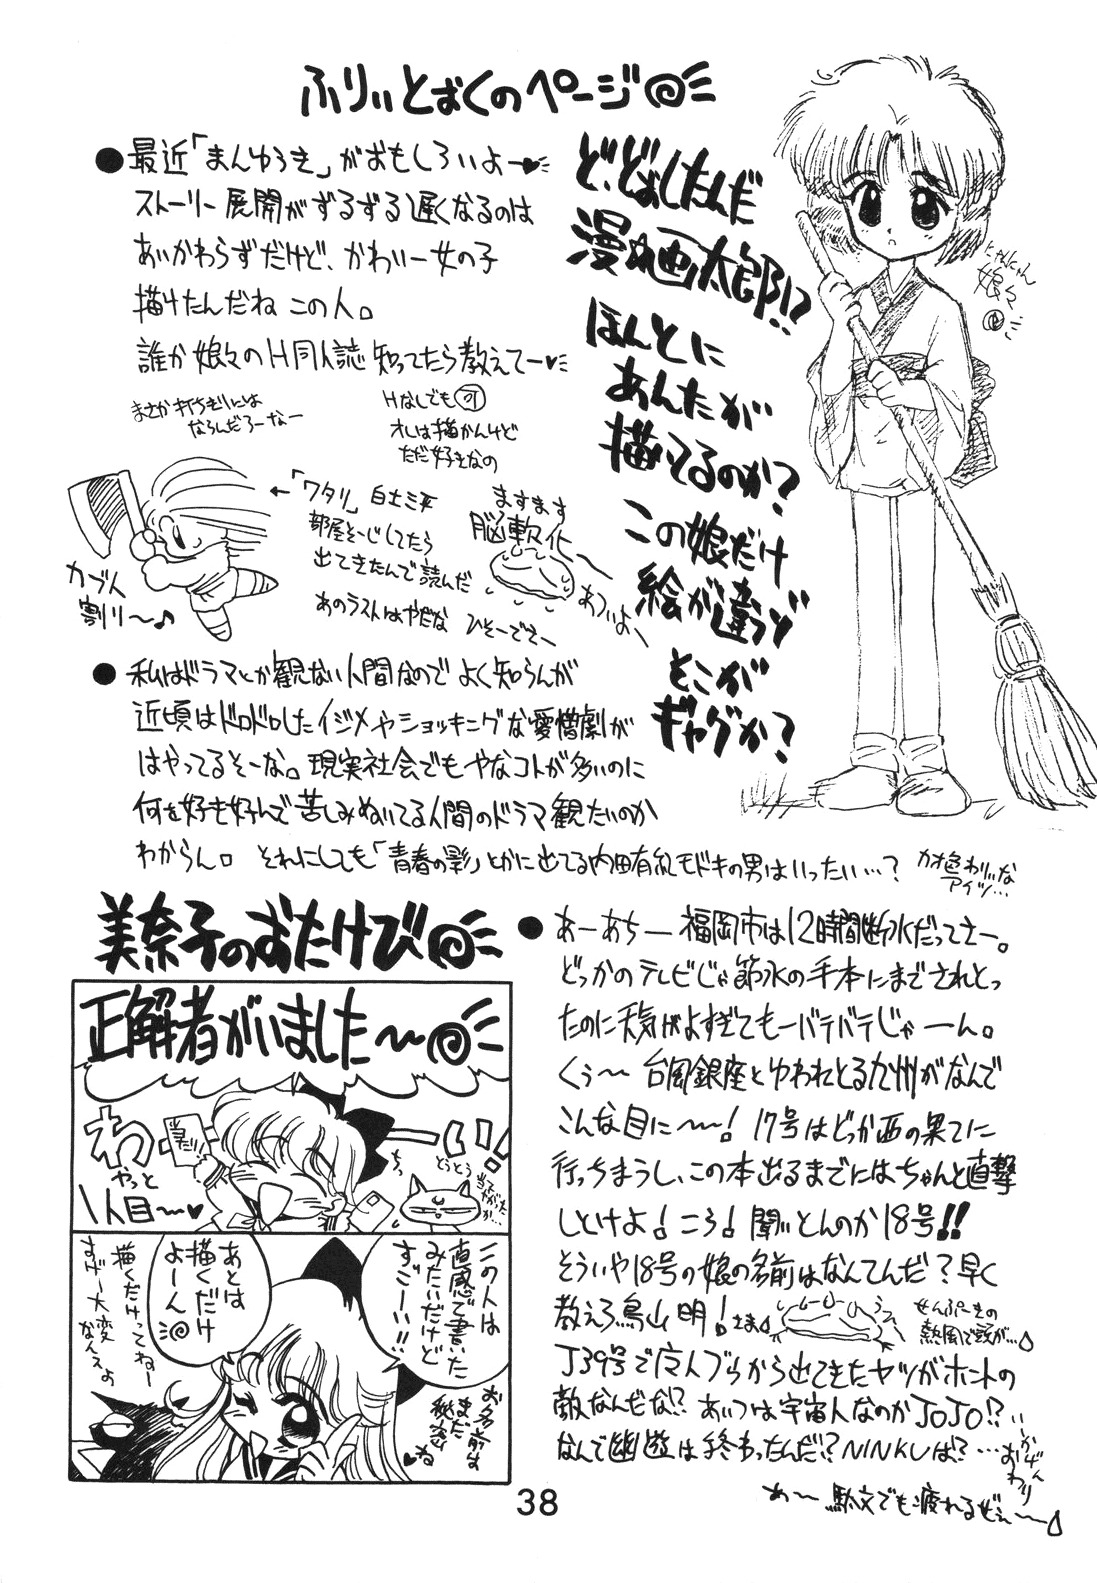 ふりぃとぉくのページ
●最近「まんゆうき」がおもしろいよー♥
ストーリー展開がずるずる遅くなるのは
あいかわらずだけど、かわいー女の子
描けたんだね この人。
誰か娘々のH同人誌知ってたら教えてー♥
まさか打ちぎりには
ならんだろーなー
Hなしでも可
オレは描かんけど
ただ好きなの
ど、どぉしたんだ
漫☆画太郎!?
ほんとに
あんたが
描いてるのか?
この娘だけ
絵が違うゾ
そこが
ギャグか?
にゃんにゃん
娘々
カブト
割り〜♪
←「ワタリ」白土三平
部屋そーじしてたら
出てきたんで読んだ
あのラストはやだな ひそーでさー
ますます
脳軟化
あついよ〜
●私はドラマとか観ない人間なのでよく知らんが
近頃はドロドロしたイジメやショッキングな愛憎劇が
はやってるそーな。現実社会でもやなコトが多いのに
何を好き好んで苦しみぬいてる人間のドラマ観たいのか
わからん。それにしても「青春の影」とかに出てる内田有紀モドキの男はいったい…?
カオ色わりぃな
アイツ…
美奈子のおたけび
正解者がいました〜
わーい!!
当たり!!
やっと
1人目〜♥
とうとう
ちっ
この人は
直感で書いた
みたいだけど
すごーい!!
あとは
描くだけ
よーん
描くだけってねー
すげー大変
なんスよ
お名前は
まだ
秘密
♥ね
●あーあちー 福岡市は12時間断水だってさー。
どっかのテレビじゃ節水の手本にまでされとっ
たのに天気がよすぎてもーバテバテじゃーん。
くぅ〜 台風銀座とゆわれとる九州がなんで
こんな目に〜! 17号はどっか西の果てに
行っちまうし、この本出るまでにはちゃんと直撃
しとけよ! こら! 聞いとんのか18号!!
そういや18号の娘の名前はなんてんだ? 早く
教えろ鳥山明! さま
せんぷーきの
熱風で頭が…
J39号で広人ブらから出てきたヤツがホントの
敵なんだな!? あいつは宇宙人なのかJOJO!?
なんで幽遊は終わったんだ!? NINKUは?…
おわり
あ〜 駄文でも疲れるぜぇ〜
38